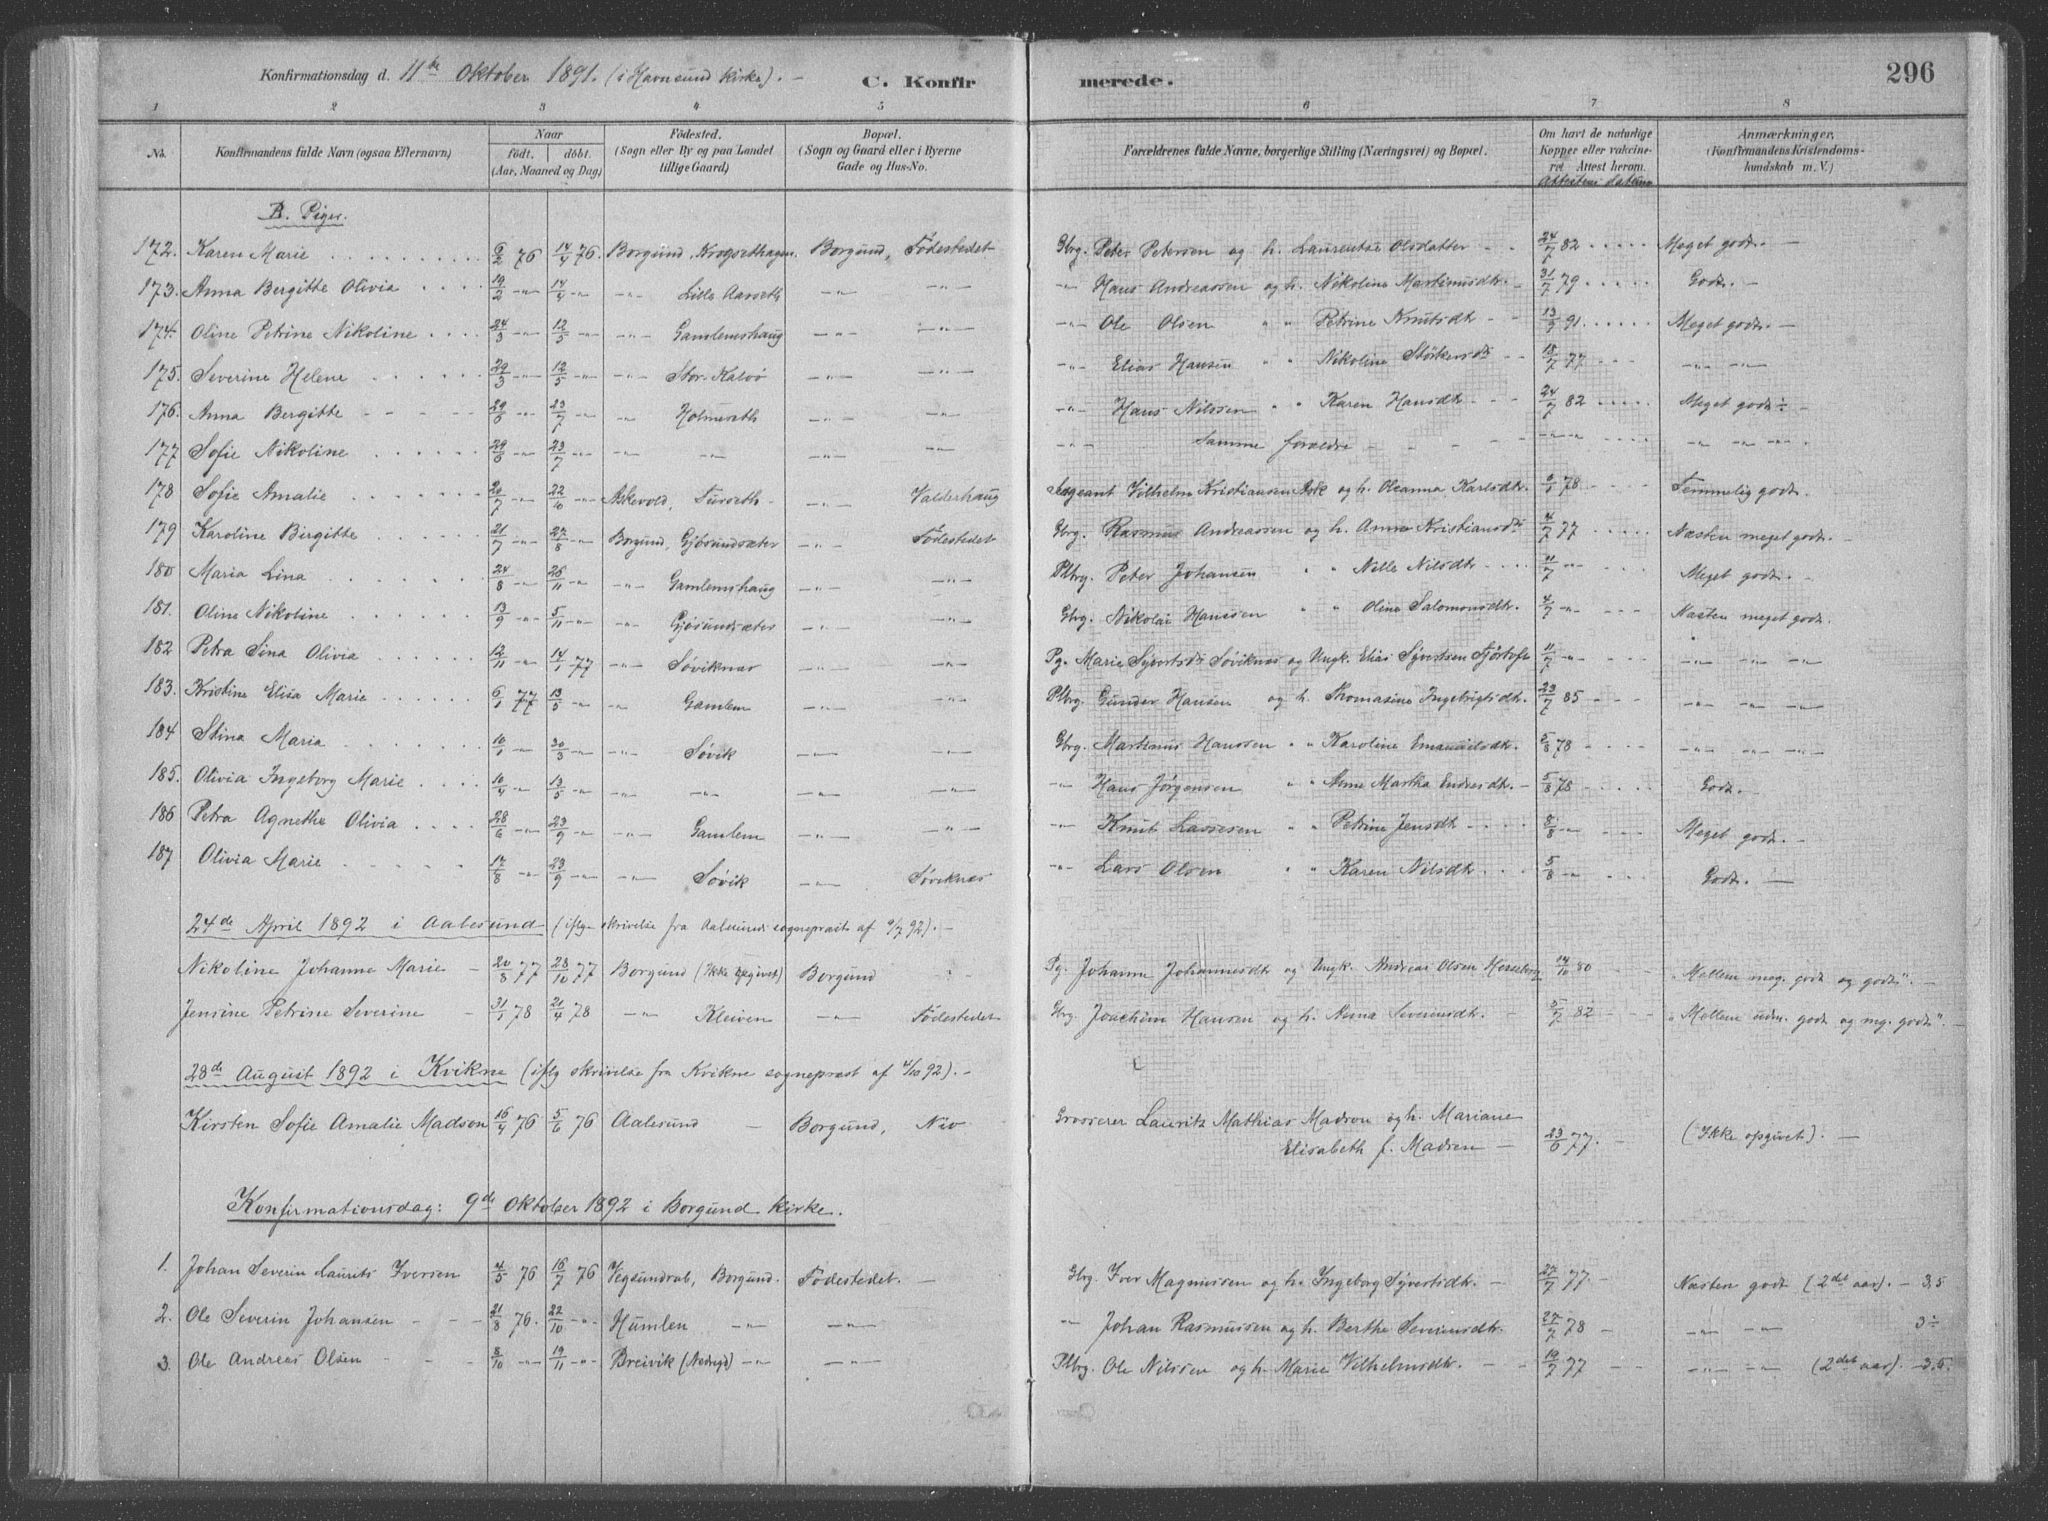 Konfirmationsdag d. 11te Oktober 1891. (i Havnsund Kirke). — C. Konfirmerede. 296
1 2 3 4 5 6 7 8
No. Konfirmandens fulde Navn (ogsaa Efternavn) Naar født. døbt. (Aar, Maaned og Dag) Födested. (Sogn eller By og paa Landet tillige Gaard) Bopæl. (Sogn og Gaard eller i Byerne Gade og Hus-No. Forældrenes fulde Navne, borgerlige Stilling (Næringsvei) og Bopæl. Om havt de naturlige Kopper eller vaccineret. Attest herom. Attestens datum Anmærkninger. (Konfirmandens Kristendomskundskab m. V.)
B. Piger.
172. Karen Marie 6/2 76 14/4 76. Borgund, Krogsethagen. Borgund, Födestedet Gbrg. Peter Petersen og h. Laurentse Olsdatter 24/7 82 Meget godt. —
173. Anna Bergitte Olivia 19/2 -"- 14/4 -"- -"- Lille Aarseth -"- -"- -"- Hans Andreassen og h. Nikoline Martinusdtr. 31/7 79 Godt. —
174. Oline Petrine Nikoline 24/3 -"- 12/5 -"- -"- Gamlemshaug -"- -"- -"- Ole Olsen " " Petrine Knutsdtr 13/9 91. Meget godt. —
175. Severine Helene 29/3 -"- 12/5 -"- -"- Stor-Kalvö -"- -"- -"- Elias Hansen " " Nikoline Störkersdtr 18/7 77 -"- -"-
176. Anna Bergitte 29/6 -"- 23/7 -"- -"- Holmeseth -"- -"- -"- Hans Nilssen " " Karen Hansdtr 24/7 82 Meget godt ÷ —
177 Sofie Nikoline 29/6 -"- 23/7 -"- -"- -"- -"- -"- -"- Samme forældre -"- -"- -"- -"-
178 Sofie Amalie 20/7 -"- 22/10 -"- Askevold, Furseth -"- Valderhaug Sergeant Vilhelm Kristiansen Ask og h. Oleanna Karlsdtr. 78 Temmelig godt.
179 Karoline Birgitte 21/7 -"- 27/8 -"- Borgund, Gjösundsæter -"- Födestedet Gbrg. Rasmus Andreassen og h. Anne Kristiansdtr 4/7 77 Næsten meget godt. —
180 Maria Lina 24/8 -"- 26/11 -"- -"- Gamlemshaug -"- -"- Plbrg. Peter Johansen " " Nille Nilsdtr 11/7 -"- Meget godt. —
181. Oline Nikoline 13/9 -"- 5/11 -"- -"- Gjösundsæter -"- -"- Gbrg. Nikolai Hanssen " " Oline Salomonsdtr. 4/7 -"- Næsten meget godt.
182 Petra Sina Olivia 12/11 -"- 14/1 77 -"- Söviknes -"- -"- Pg. Marie Syvertsdtr Söviknes og Ungk. Elias Syvertsen Fjörtoft 11/7 -"- -"- -"- -"-
183. Kristine Elisa Marie 6/1 77 13/5 -"- -"- Gamlem -"- -"- Plbrg. Gunder Hansen og h. Thomasine Ingebrigtsdtr. 23/7 85 -"- -"- -"-
184 Stina Maria 10/1 -"- 30/3 -"- -"- Søvik -"- -"- Gbrg. Martinus Hanssen " " Karoline Emanuelsdtr. 5/8 78 -"- -"- -"-
185. Olivia Ingeborg Marie 10/4 -"- 13/5 -"- -"- -"- -"- -"- -"- Hans Jørgensen " " Anne Martha Endresdtr. 5/8 78 Godt. —
186 Petra Agnethe Olivia 28/6 -"- 23/9 -"- -"- Gamlem -"- -"- -"- Knut Lassesen " " Petrine Jensdtr 8/8 -"- Meget godt. —
187 Olivia Marie 17/8 -"- 23/9 -"- -"- Søvik -"- Søviknes -"- Lars Olsen " " Karen Nilsdtr. 5/8 -"- Godt. —
24de April 1892 i Aalesund (iflg. skrivelse fra Aalesunds sogneprest af 9/7 92). —
Nikoline Johanne Marie 20/8 77 28/10 77 Borgund (Ikke opgivet) Borgund ? Pg. Johanne Johannesdtr og Ungk. Andreas Olsen 14/10 80 "Mellem meg. godt og godt". —
Jensine Petrine Severine 31/1 78 21/4 78 -"- Kleiven -"- Födestedet Gbrg. Joachim Hansen og h. Anna Severinsdtr. 5/7 82 "Mellem udm. godt og mg. godt". —
28de August 1892 i Kvikne (iflg skrivelse fra Kvikne sogneprest af 4/10 92). —
Kirsten Sofie Amalie Madson 16/4 76 5/6 76 Aalesund — Borgund, Nio Grosserer Lauritz Mathias Madson og h. Mariane
Elisabeth f. Madsen — 23/6 77. (Ikke opgivet). —
Konfirmationsdag: 9de Oktober 1892 i Borgund Kirke.
1. Johan Severin Laurits Iversen 4/5 76 16/7 76 Vegsundral, Borgund. Födestedet. — Gbrg. Iver Magnussen og h. Ingeborg Syvertsdtr. 27/7 77. Næsten godt (2det aar). — 3,5
2. Ole Severin Johansen 21/8 76. 22/10 -"- Humlen -"- -"- -"- Johan Rasmussen og h. Berthe Severinsdtr. 27/7 78 -"- -"- 3 ÷
3. Ole Andreas Olsen 8/10 -"- 19/11 -"- Breivik (Nedregd) -"- -"- Plbrg. Ole Nilssen og h. Marie Vilhelmsdtr. 19/7 77 -"- -"- (2det aar). — 3,5.